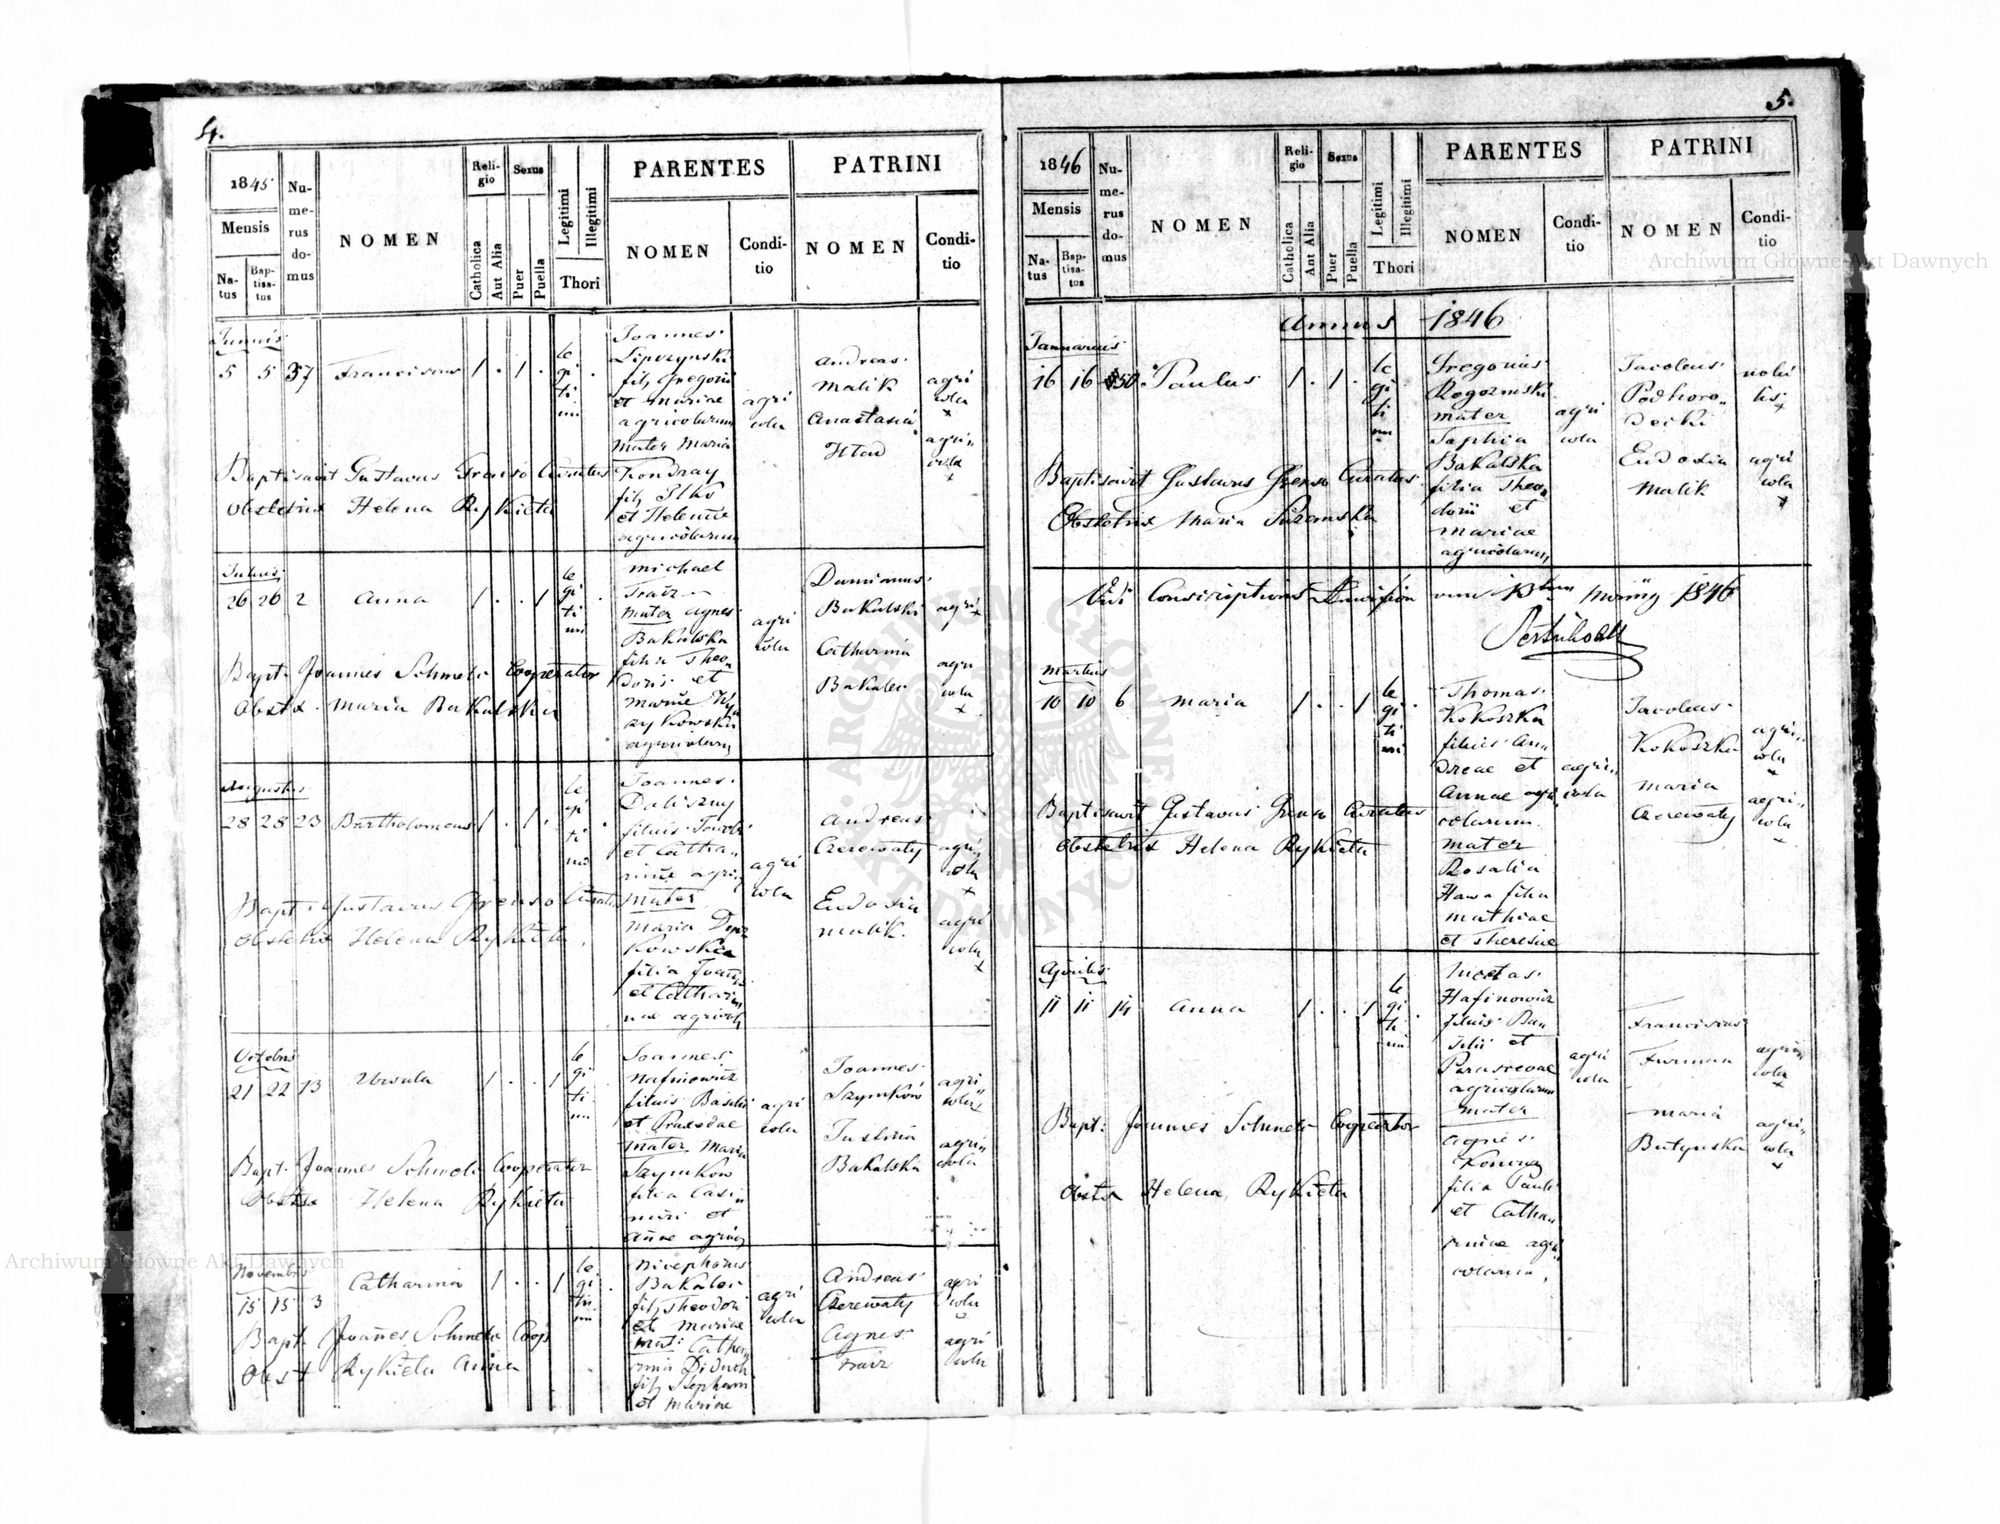 4.
1845
Mensis
Natus
Baptisatus
Numerus domus
NOMEN
Religio
Catholica
Aut Alia
Sexus
Puer
Puella
Legitimi
Illegitimi
Thori
PARENTES
NOMEN
Conditio
PATRINI
NOMEN
Conditio
Junius
5 5 37 Franciscus 1 . 1 . legitimi .
Joannes
Lipczynski
filg Gregorii
et Mariae
agricolarum
Mater Maria
Kondray
filg Ilko
et Helenae
agricolarum
agricola
Andreas
Malik
agricola
+
Anastasia
Hlad
agricola
+
Baptisavit Gustavus Grenso Curatus
Obstetrix Helena Rykieta
Julius
26 26 2 Anna 1 . . 1 legitimi .
Michael
Fraiz
Mater Agnes
Bakalska
filia Theo
doris et
Mariae
agricolarum
agricola
Damianus
Bakalski
agri
+
Catharina
Bakaler
agricola
+
Bapt. Joannes Schmelz Cooperator
Obstx. Maria Bakalska
Augustus
28 28 23 Bartholomeus 1 . 1 . legitimi .
Joannes
Daliszny
filius Jacobi
et Catha
rinae agric
Mater
Maria
kowska
filia Joañis
et Cathari
nae agricol
agricola
Andreas
Czerewaty
agricola
+
Eudoxia
Malik.
agricola
+
Bapt. Gustavus Grenso Curatus
Obstetrix Helena Rykieta
Octobris
21 22 13 Ursula 1 . . 1 legitimi
Joannes
Hafinowicz
filius Basilii
et Praxedae
Mater Maria
Szymkow
filia Casi
miri et
Añae agric
agricola
Joannes
Szymków
agricola
Justina
Bakalska
agricola
Bapt. Joannes Schmelz Cooperator
Obstx Helena Rykieta
Novembris
15 15 3 Catharina 1 . . 1 legitimi .
Nicephorus
Bakaler
filg Theodori
et Mariae
Mat: Catha
rina Diduch
filg Stephani
et Mariae
agricola
Andreas
Czerewaty
agricola
Agnes
Fraiz
agricola
Bapt. Joañes Schmelz Coop
Obst Rykieta Anna
5.
1846
Mensis
Natus
Baptisatus
Numerus domus
NOMEN
Religio
Catholica
Aut Alia
Sexus
Puer
Puella
Legitimi
Illegitimi
Thori
PARENTES
NOMEN
Conditio
PATRINI
NOMEN
Conditio
Annus 1846
Januarius
16 16 50 Paulus 1 . 1 . legitimi
Gregorius
Rogozinski
mater
Sophia
Bakalska
filia Theo
dorii et
Mariae
agricolarum
agricola
Jacobus
Podhoro
decki
nobilis
+
Eudoxia
Malik
agricola
+
Baptisavit Gustavus Grenso Curatus
Obstetrix Maria
Vidi Conscriptionis 1846
Martius
10 10 6 Maria 1 . . 1 legitimi .
Thomas
Kokoszka
filius An
dreae et
Annae agri
colarum.
mater
Rosalia
Hawa filia
Mathiae
et Theresiae
agricola
Jacobus
Kokoszka
agricola
+
Maria
Czerewaty
agricola
Baptisavit Gustavus Grenso Curatus
Obstetrix Helena Rykieta
Aprilis
11 11 14 Anna 1 . . 1 legitimi .
Nicetas
Hafinowicz
filius Ba
silii et
Parascevae
agricolarum
Mater
Agnes
filia Pauli
et Catha
rinae agri
colarum.
agricola
Franciscus
Furman
agricola
+
Maria
Butynska
agricola
+
Bapt: Joannes Schmelz Cooperator
Obstx Helena Rykieta
Archiwum Główne Akt Dawnych
Archiwum Główne Akt Dawnych
ARCHIWUM GŁÓWNE AKT DAWNYCH